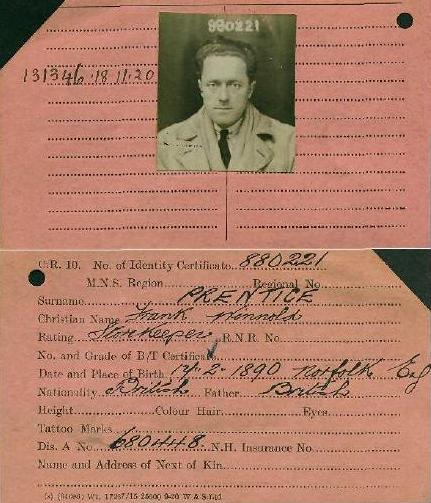 880221
131346 · 18.11.20
C.R. 10. No. of Identity Certificate 880221
M.N.S. Region Regional No
Surname PRENTICE
Christian Name Frank Winnold
Rating Storekeeper R.N.R. No
No. and Grade of B/T Certificate
Date and Place of Birth 17.2.1890 Norfolk Eng
Nationality British Father British
Height Colour Hair Eyes
Tattoo Marks
Dis. A No. 680448 N.H. Insurance No
Name and Address of Next of Kin